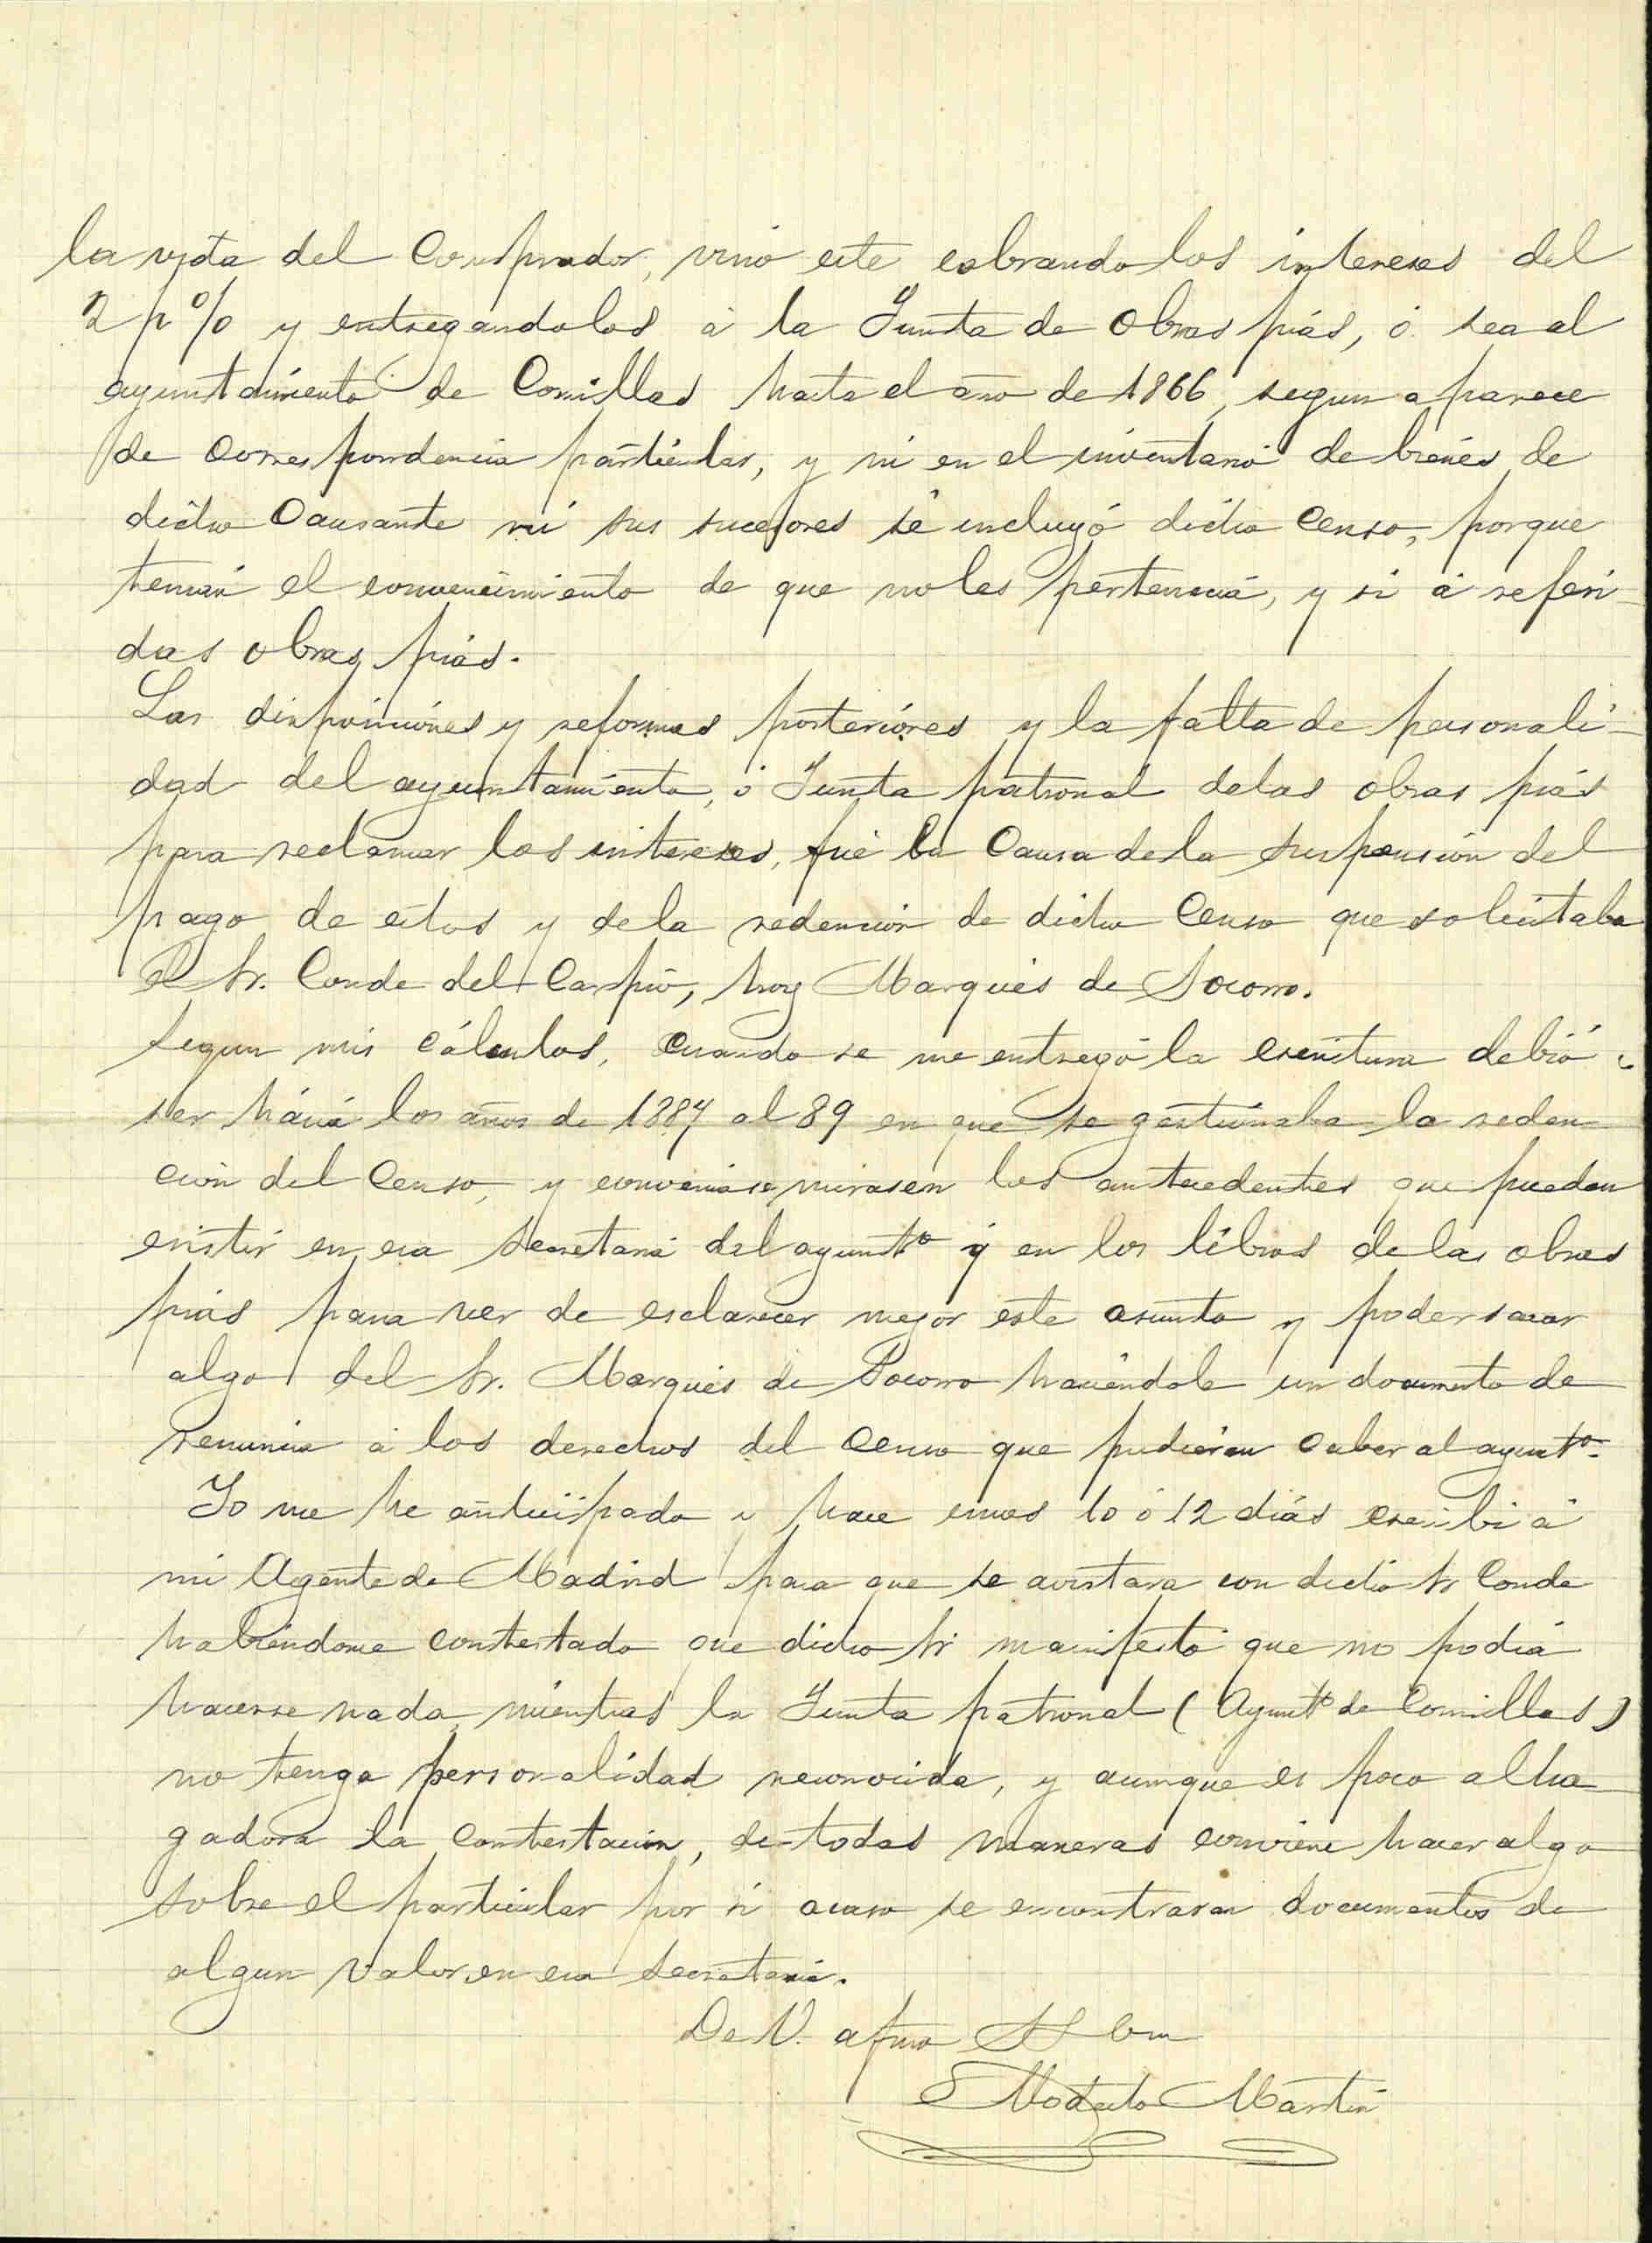 la vida del Comprador, vino este cobrando los intereses del
2 p% y entregandolos á la Junta de Obras piás, ó sea al
ayuntamiento de Comillas hasta el año de 1866, segun aparece
de correspondencia particular, y ni en el inventario de bienes de
dicho Causante ni sus sucesores se incluyó dicho Censo, porque
tenián el convencimiento de que no les perteneciá, y si á referi-
das obras piás.
Las disposiciónes y reformas posterióres y la falta de personali-
dad del ayuntamiento, ó Junta patronal de las obras piás
para reclamar los intereses, fué la Causa de la suspension del
pago de éstos y de la redencion de dicho Censo que solicitaba
el Sr. Conde del Carpio, hoy Marqués de Socorro.
Segun mis cálculos, Cuando se me entregó la escritura debió
ser háciá los años de 1887 al 89 en que se gestionaba la reden-
cion del Censo, y convenia se mirasen los antecedentes que puedan
existir en esa Secretaria del ayunto y en los libros de las obras
piás para ver de esclarecer mejor este asunto y poder sacar
algo del Sr. Marqués de Socorro haciéndole un documento de
renuncia á los derechos del Censo que pudieran caber al ayunto.
Yo me he anticipado y hace unos 10 ó 12 diás escribi á
mi Agente de Madrid para que se avistara con dicho Sr Conde
habiéndome contestado que dicho Sr manifestó que no podiá
hacerse nada, mientras la Junta patronal (Ayunto de Comillas)
no tenga personalidad reconocida, y aunque es poco alha-
gadora la contestacion, de todas maneras conviene hacer algo
sobre el particular por si acaso se encontraran documentos de
algun valor en esa Secretaria.
De V. afmo
Modesto Martin